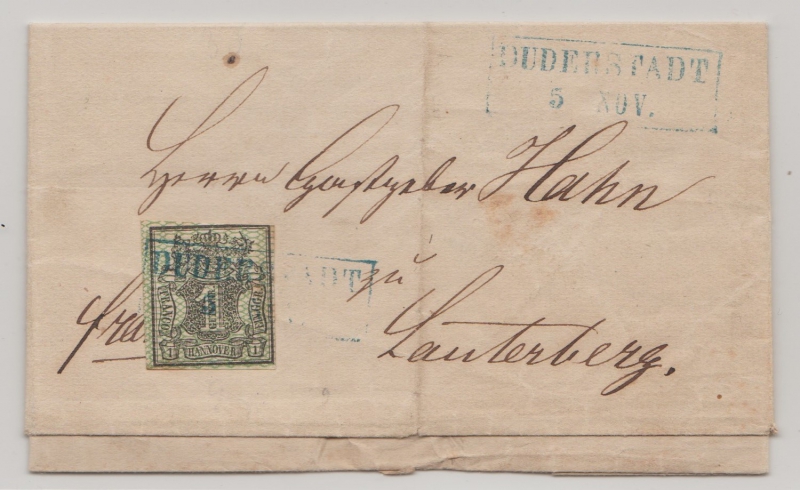 DUDERSTADT
5 NOV.
Herrn Gastgeber Hahn
DUDERSTADT
5
zu
1
fra
1 HANNOVER 1
Lauterberg.